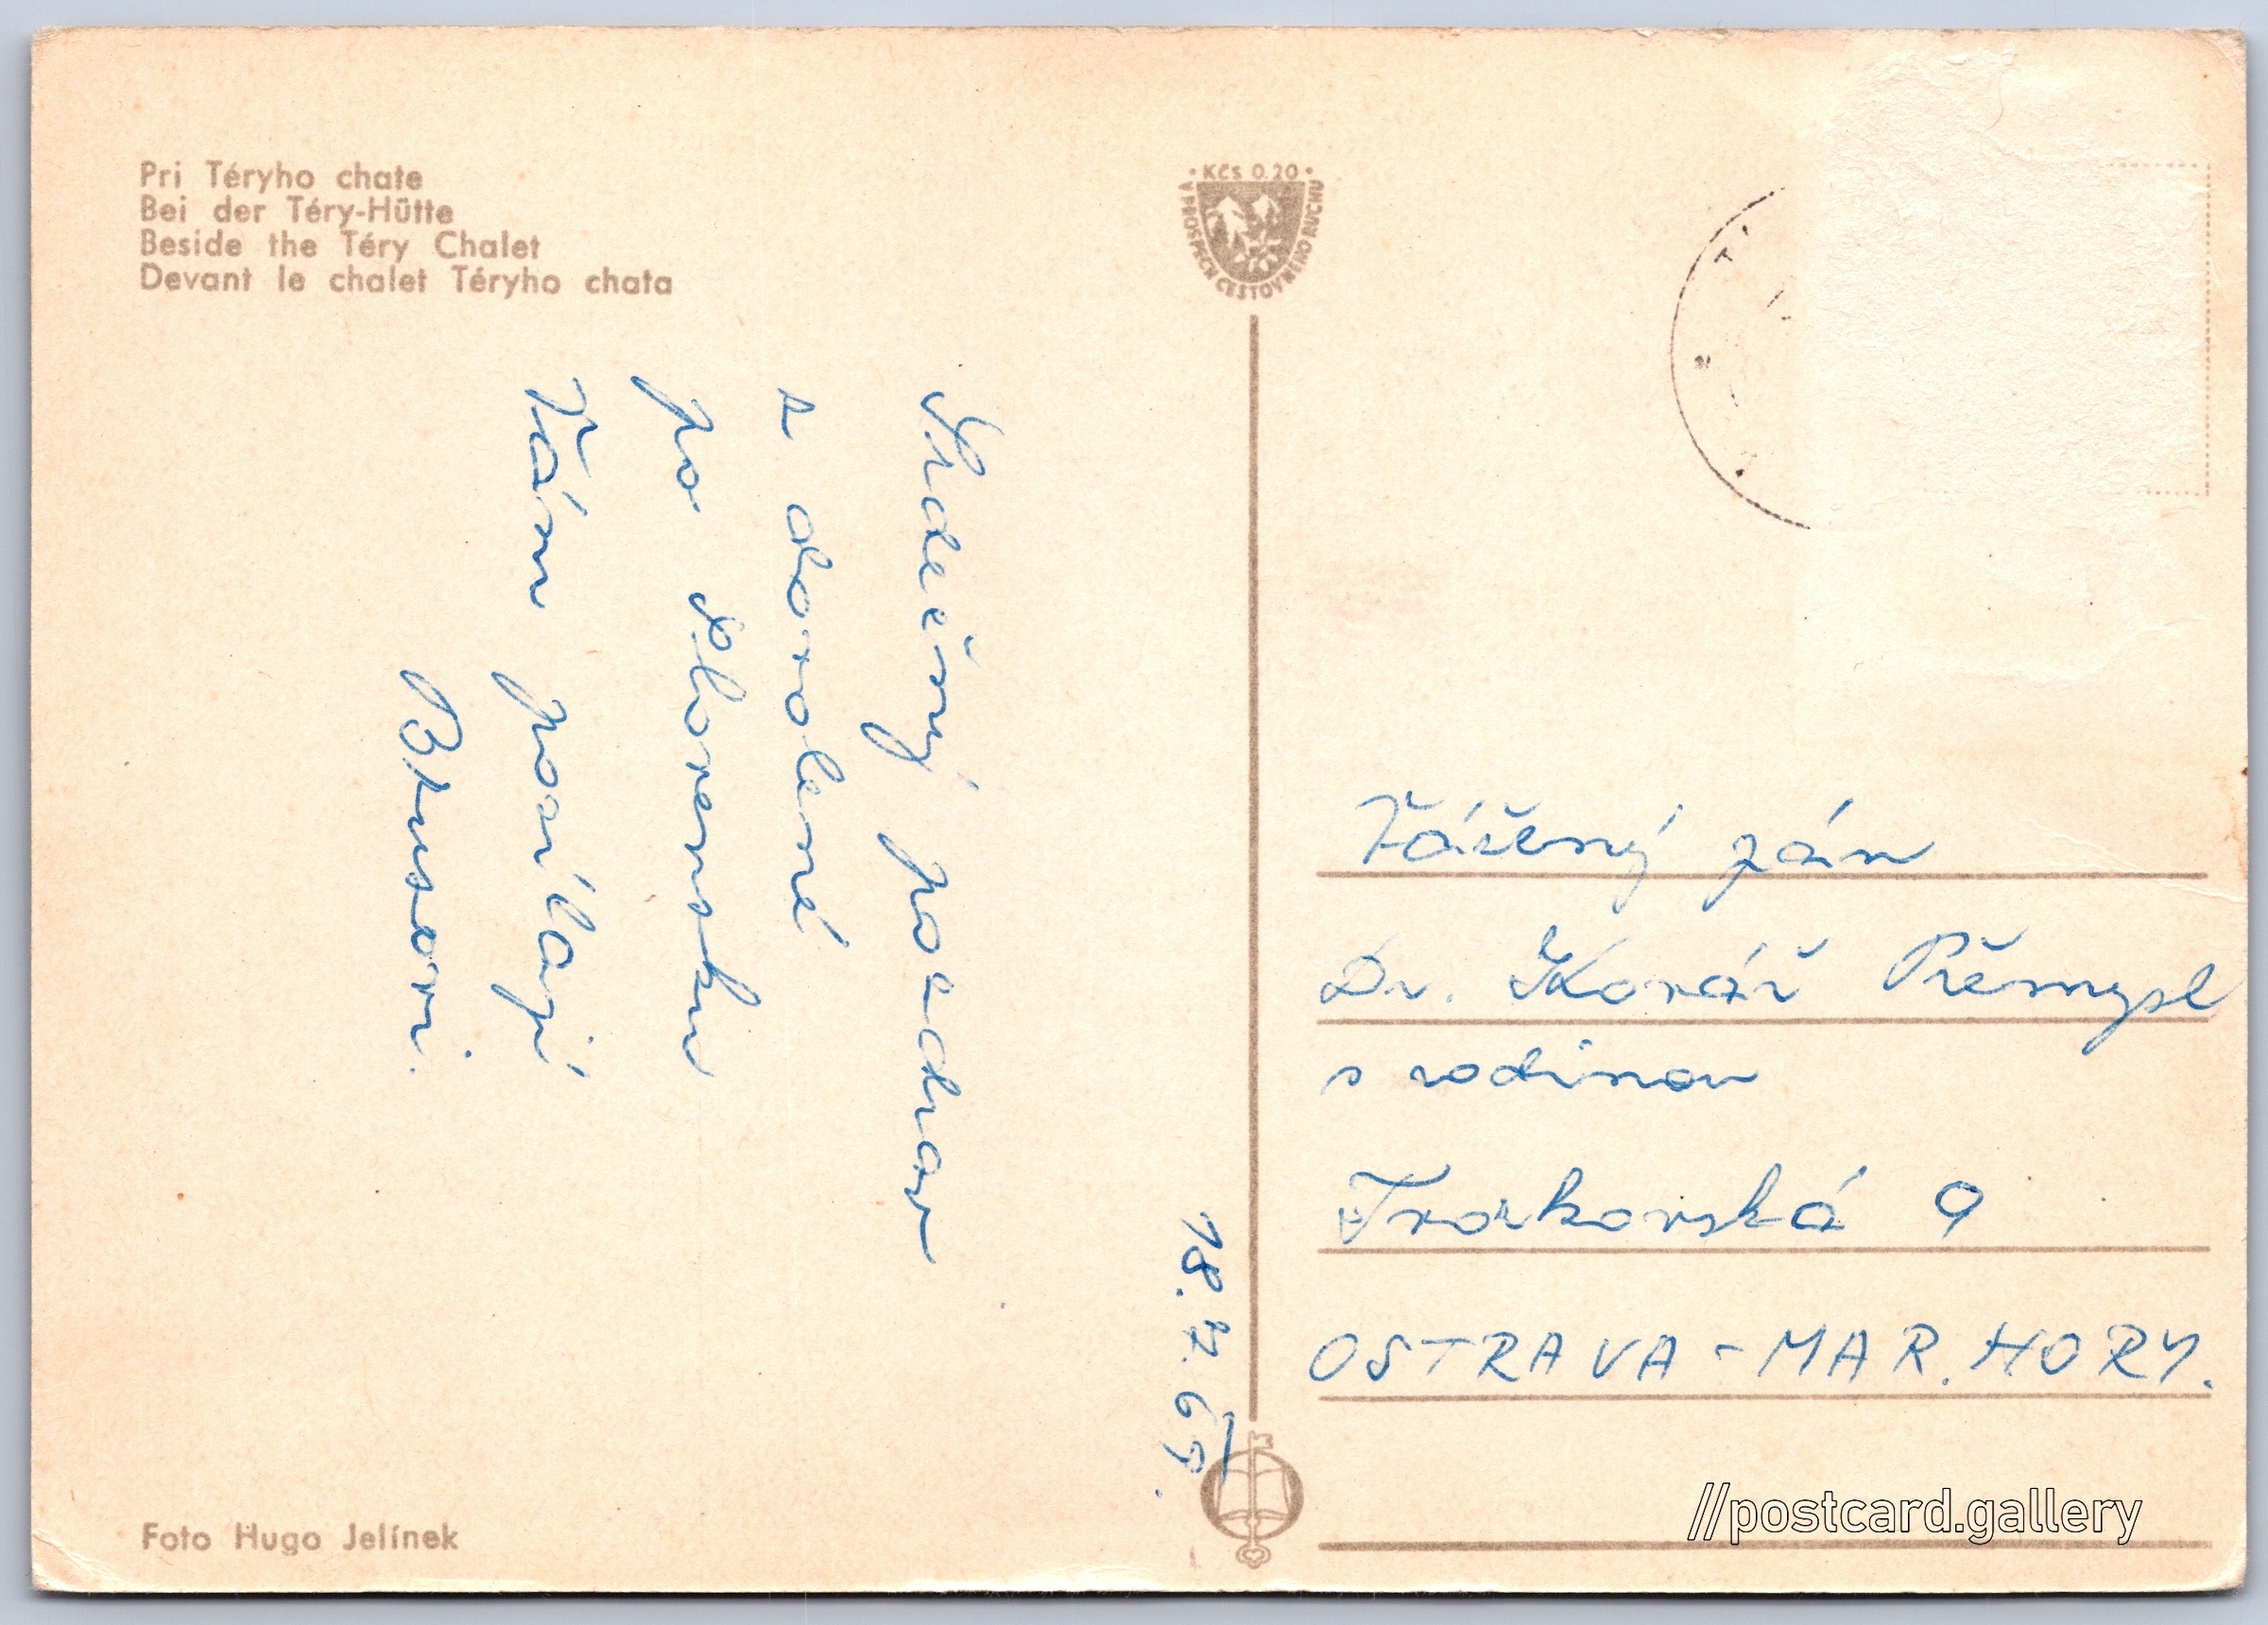 Pri Téryho chate
Bei der Téry-Hütte
Beside the Téry Chalet
Devant le chalet Téryho chata
• Kčs 0.20 •
V PROSPECH CESTOVNÉHO RUCHU
Srdečný pozdrav
z dovolené
po Slovensku
Vám posílají
Brusovi.
18. 7. 69.
Vážený pán
Dr. Kovář Přemysl
s rodinou
Tvorkovská 9
OSTRAVA - MAR. HORY.
Foto Hugo Jelínek
//postcard.gallery